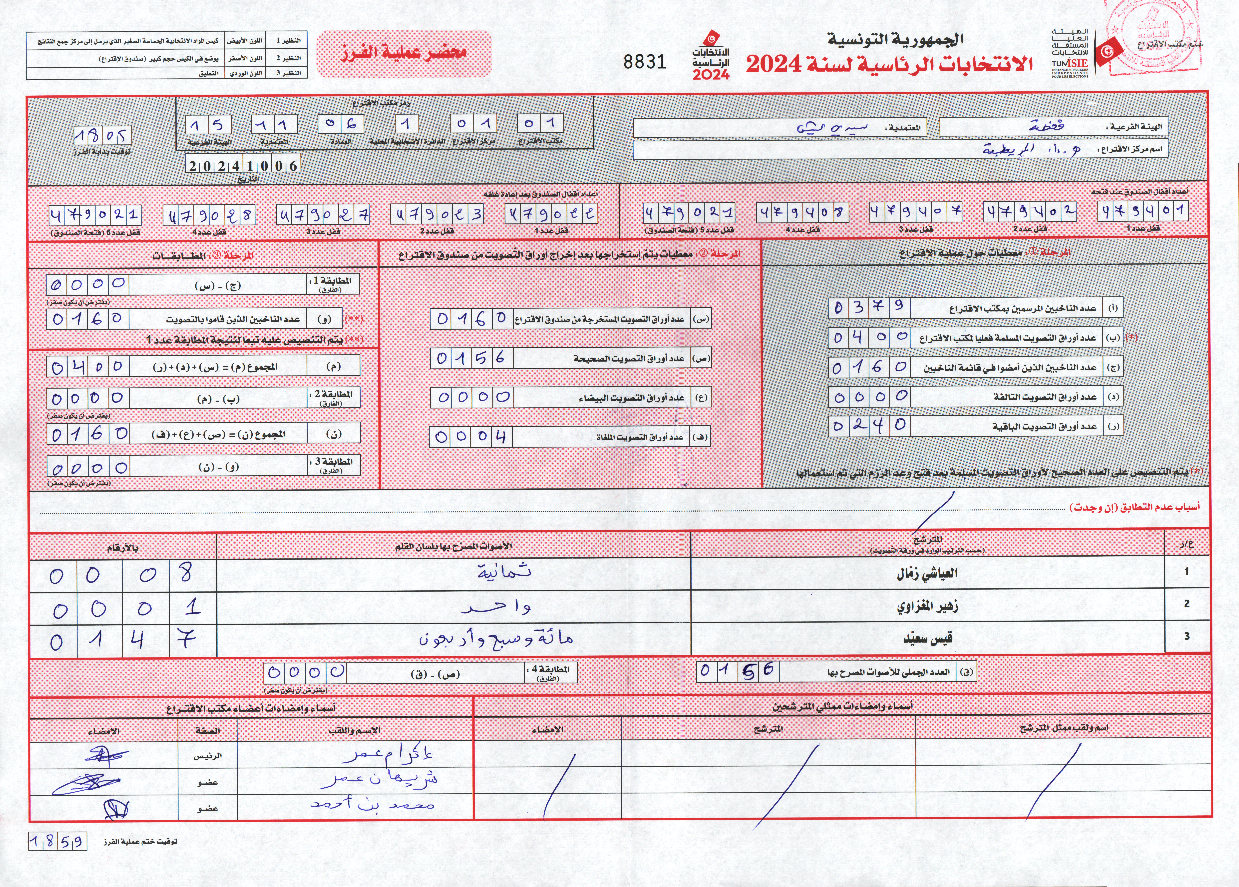 النظير 1 اللون الأبيض كيس المواد الانتخابية الحساسة الصغير الذي يرسل إلى مركز جمع النتائج
النظير 2 اللون الأصفر يوضع في الكيس حجم كبير (صندوق الاقتراع)
النظير 3 اللون الوردي التعليق
محضر عملية الفرز
8831
الانتخابات الرئاسية 2024
الجمهورية التونسية
الانتخابات الرئاسية لسنة 2024
الهيئة العليا المستقلة للانتخابات
TUNISIE
ختم مكتب الاقتراع
الهيئة الفرعية : قفصة
المعتمدية :
اسم مركز الاقتراع :
رمز مكتب الاقتراع
15 11 06 1 01 01
الهيئة الفرعية المعتمدية العمادة الدائرة الانتخابية المحلية مركز الاقتراع مكتب الاقتراع
20241006
التاريخ
1805
توقيت بداية الفرز
أعداد أقفال الصندوق عند فتحه
479401 479402 479407 479408 479021
قفل عدد 1 قفل عدد 2 قفل عدد 3 قفل عدد 4 قفل عدد 5 (فتحة الصندوق)
أعداد أقفال الصندوق بعد إعادة غلقه
479022 479023 479027 479028 479021
قفل عدد 1 قفل عدد 2 قفل عدد 3 قفل عدد 4 قفل عدد 5 (فتحة الصندوق)
المرحلة 1: معطيات حول عملية الاقتراع
(أ) عدد الناخبين المرسمين بمكتب الاقتراع 0379
(*) (ب) عدد أوراق التصويت المسلمة فعليا لمكتب الاقتراع 0400
(ج) عدد الناخبين الذين أمضوا في قائمة الناخبين 0160
(د) عدد أوراق التصويت التالفة 0000
(ر) عدد أوراق التصويت الباقية 0240
(*) يتم التنصيص على العدد الصحيح لأوراق التصويت المسلمة بعد فتح وعد الرزم التي تم استعمالها
المرحلة 2: معطيات يتم إستخراجها بعد إخراج أوراق التصويت من صندوق الاقتراع
(س) عدد أوراق التصويت المستخرجة من صندوق الاقتراع 0160
(ص) عدد أوراق التصويت الصحيحة 0156
(ع) عدد أوراق التصويت البيضاء 0000
(ف) عدد أوراق التصويت الملغاة 0004
المرحلة 3: المطابقات
المطابقة 1 : (الفارق) (ج) - (س) 0000
(يفترض أن يكون صفر)
(**) (و) عدد الناخبين الذين قاموا بالتصويت 0160
(**) يتم التنصيص عليه تبعا لنتيجة المطابقة عدد 1
(م) المجموع (م) = (س)+(د)+(ر) 0400
المطابقة 2 : (الفارق) (ب) - (م) 0000
(يفترض أن يكون صفر)
(ن) المجموع (ن) = (ص)+(ع)+(ف) 0160
المطابقة 3 : (الفارق) (و) - (ن) 0000
(يفترض أن يكون صفر)
أسباب عدم التطابق (إن وجدت)
ع/ر المترشح (حسب الترتيب الوارد في ورقة التصويت) الأصوات المصرح بها بلسان القلم بالأرقام
1 العياشي زمال ثمانية 0008
2 زهير المغزاوي واحد 0001
3 قيس سعيّد مائة وسبع وأربعون 0147
(ق) العدد الجملي للأصوات المصرح بها 0156
المطابقة 4 : (الفارق) (ص) - (ق) 0000
(يفترض أن يكون صفر)
أسماء وإمضاءات ممثلي المترشحين
اسم ولقب ممثل المترشح المترشح الامضاء
أسماء وإمضاءات أعضاء مكتب الاقتراع
الاسم واللقب الصفة الامضاء
إكرام عمر الرئيس
شريهان عمر عضو
محمد بن أحمد عضو
توقيت ختم عملية الفرز 1859